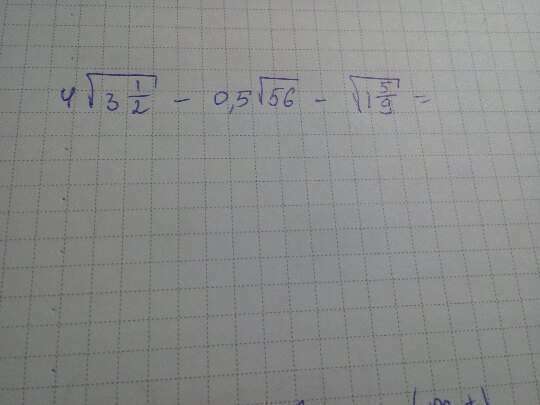 4√(3 1/2) − 0,5√56 − √(1 5/9) =